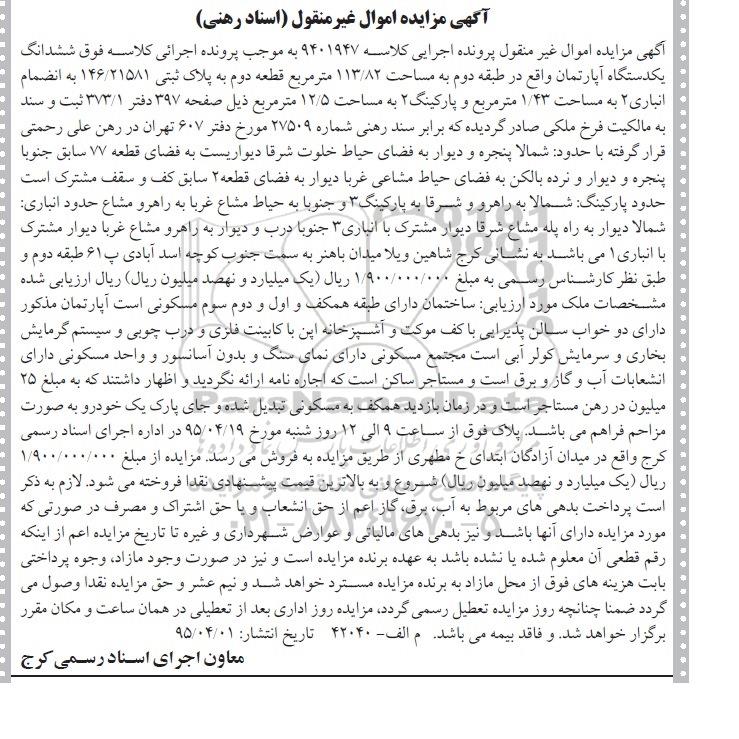 آگهی مزایده اموال غیرمنقول (اسناد رهنی)
آگهی مزایده اموال غیر منقول پرونده اجرایی کلاسه ۹۴۰۱۹۴۷ به موجب پرونده اجرائی کلاسه فوق ششدانگ
یکدستگاه آپارتمان واقع در طبقه دوم به مساحت ۱۱۳/۸۲ مترمربع قطعه دوم به پلاک ثبتی ۱۴۶/۲۱۵۸۱ به انضمام
انباری۲ به مساحت ۱/۴۳ مترمربع و پارکینگ۲ به مساحت ۱۲/۵ مترمربع ذیل صفحه ۳۹۷ دفتر ۳۷۳/۱ ثبت و سند
به مالکیت فرخ ملکی صادر گردیده که برابر سند رهنی شماره ۲۷۵۰۹ مورخ دفتر ۶۰۷ تهران در رهن علی رحمتی
قرار گرفته با حدود: شمالا پنجره و دیوار به فضای حیاط خلوت شرقا دیواریست به فضای قطعه ۷۷ سابق جنوبا
پنجره و دیوار و نرده بالکن به فضای حیاط مشاعی غربا دیوار به فضای قطعه۲ سابق کف و سقف مشترک است
حدود پارکینگ: شمالا به راهرو و شرقا به پارکینگ۳ و جنوبا به حیاط مشاع غربا به راهرو مشاع حدود انباری:
شمالا دیوار به راه پله مشاع شرقا دیوار مشترک با انباری۳ جنوبا درب و دیوار به راهرو مشاع غربا دیوار مشترک
با انباری۱ می باشد به نشانی کرج شاهین ویلا میدان باهنر به سمت جنوب کوچه اسد آبادی پ۶۱ طبقه دوم و
طبق نظر کارشناس رسمی به مبلغ ۱/۹۰۰/۰۰۰/۰۰۰ ریال (یک میلیارد و نهصد میلیون ریال) ریال ارزیابی شده
مشخصات ملک مورد ارزیابی: ساختمان دارای طبقه همکف و اول و دوم سوم مسکونی است آپارتمان مذکور
دارای دو خواب سالن پذیرایی با کف موکت و آشپزخانه اپن با کابینت فلزی و درب چوبی و سیستم گرمایش
بخاری و سرمایش کولر آبی است مجتمع مسکونی دارای نمای سنگ و بدون آسانسور و واحد مسکونی دارای
انشعابات آب و گاز و برق است و مستاجر ساکن است که اجاره نامه ارائه نگردید و اظهار داشتند که به مبلغ ۲۵
میلیون در رهن مستاجر است و در زمان بازدید همکف به مسکونی تبدیل شده و جای پارک یک خودرو به صورت
مزاحم فراهم می باشد. پلاک فوق از ساعت ۹ الی ۱۲ روز شنبه مورخ ۹۵/۰۴/۱۹ در اداره اجرای اسناد رسمی
کرج واقع در میدان آزادگان ابتدای خ مطهری از طریق مزایده به فروش می رسد. مزایده از مبلغ ۱/۹۰۰/۰۰۰/۰۰۰
ریال (یک میلیارد و نهصد میلیون ریال) شروع و به بالاترین قیمت پیشنهادی نقدا فروخته می شود. لازم به ذکر
است پرداخت بدهی های مربوط به آب، برق، گاز اعم از حق انشعاب و یا حق اشتراک و مصرف در صورتی که
مورد مزایده دارای آنها باشد و نیز بدهی های مالیاتی و عوارض شهرداری و غیره تا تاریخ مزایده اعم از اینکه
رقم قطعی آن معلوم شده یا نشده باشد به عهده برنده مزایده است و نیز در صورت وجود مازاد، وجوه پرداختی
بابت هزینه های فوق از محل مازاد به برنده مزایده مسترد خواهد شد و نیم عشر و حق مزایده نقدا وصول می
گردد ضمنا چنانچه روز مزایده تعطیل رسمی گردد، مزایده روز اداری بعد از تعطیلی در همان ساعت و مکان مقرر
برگزار خواهد شد. و فاقد بیمه می باشد. م الف- ۴۲۰۴۰ تاریخ انتشار: ۹۵/۰۴/۰۱
معاون اجرای اسناد رسمی کرج
ParsNamadData
۰۲۱-۸۸۳۴۹۶۷۰-۵